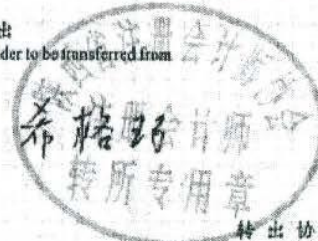 出
der to be transferred from
陕西省注册会计师协会
希格玛
注册会计师
转所专用章
转出协